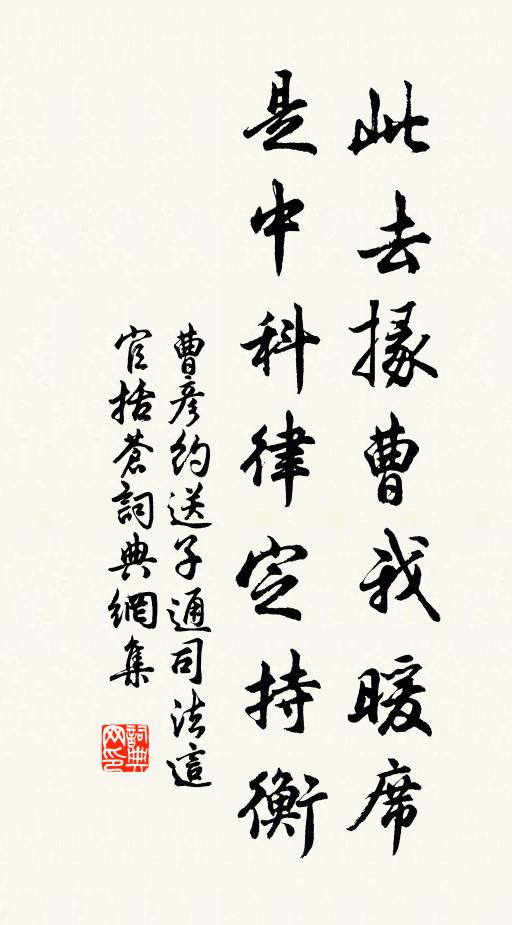 此去掾曹我暖席
是中科律定持衡
曹彦約送子通司法這
官括蒼詞典網集
詞典网印